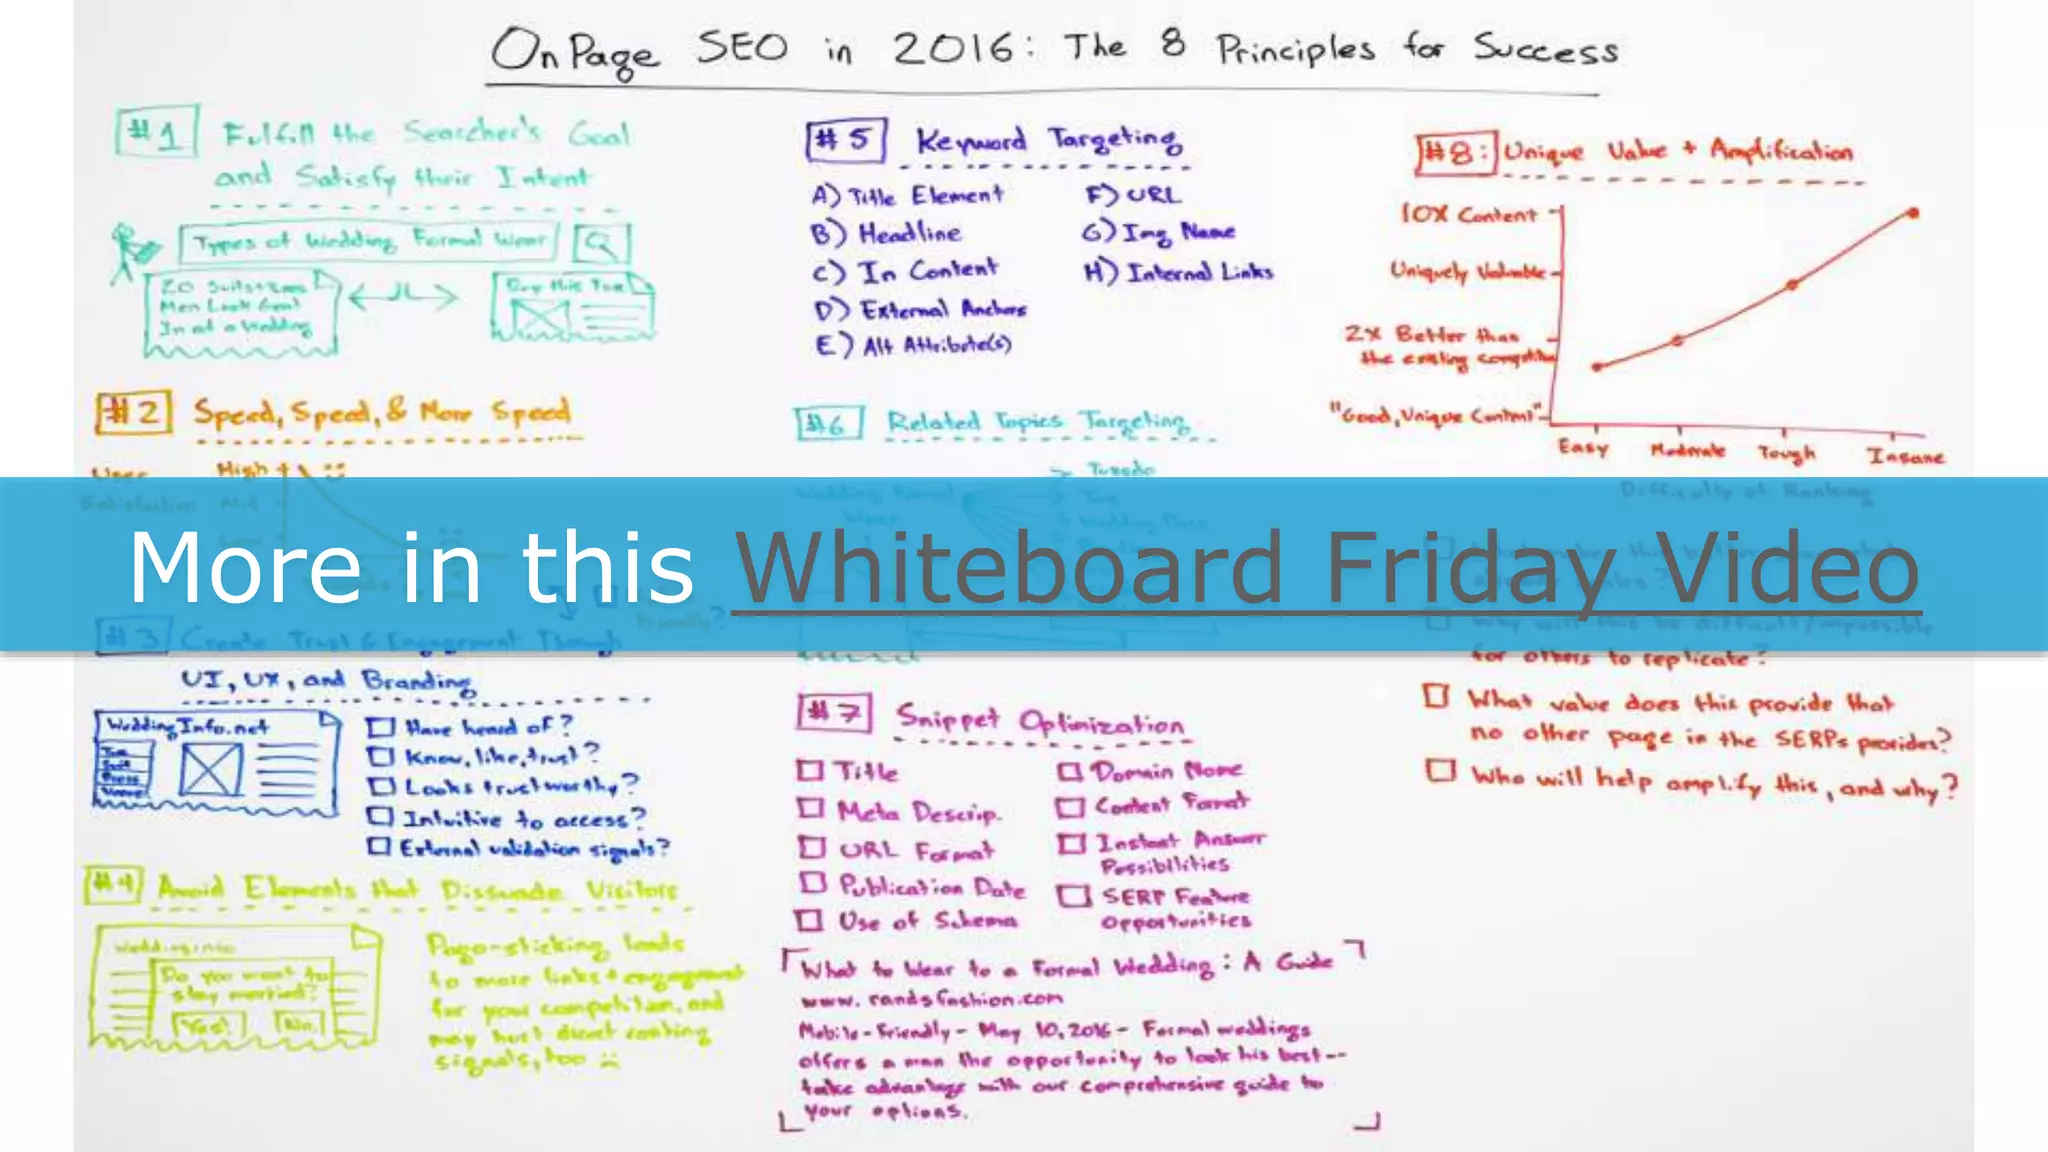 On Page SEO in 2016: The 8 Principles for Success
#1 Fulfill the Searcher's Goal
and Satisfy their Intent
Types of Wedding Formal Wear
20 Suits
Men Look Good
In at a Wedding
Buy this Tux
#2 Speed, Speed, & More Speed
User
Satisfaction
High
Mid
Low
Friendly?
#3 Create Trust & Engagement Through
UI, UX, and Branding
WeddingInfo.net
Tux
Suit
Dress
Have heard of?
Know, like, trust?
Looks trustworthy?
Intuitive to access?
External validation signals?
#4 Avoid Elements that Dissuade Visitors
Do you want to
stay married?
Yes!
No.
Pogo-sticking leads
to more links + engagement
for your competition, and
may hurt direct ranking
signals, too
#5 Keyword Targeting
A) Title Element
B) Headline
C) In Content
D) External Anchors
E) Alt Attribute(s)
F) URL
G) Img Name
H) Internal Links
#6 Related Topics Targeting
Wedding Formal
Wear
Tuxedo
Tux
Wedding Dress
More in this Whiteboard Friday Video
#7 Snippet Optimization
Title
Meta Descrip.
URL Format
Publication Date
Use of Schema
Domain Name
Content Format
Instant Answer
Possibilities
SERP Feature
Opportunities
What to Wear to a Formal Wedding: A Guide
www.randsfashion.com
Mobile-Friendly - May 10, 2016 - Formal weddings
offers a man the opportunity to look his best--
take advantage with our comprehensive guide to
your options.
#8: Unique Value + Amplification
10X Content
Uniquely Valuable
2X Better than
the existing
"Good, Unique Content"
Easy
Moderate
Tough
Insane
Difficulty of Ranking
Why will this be difficult/impossible
for others to replicate?
What value does this provide that
no other page in the SERPs provides?
Who will help amplify this, and why?